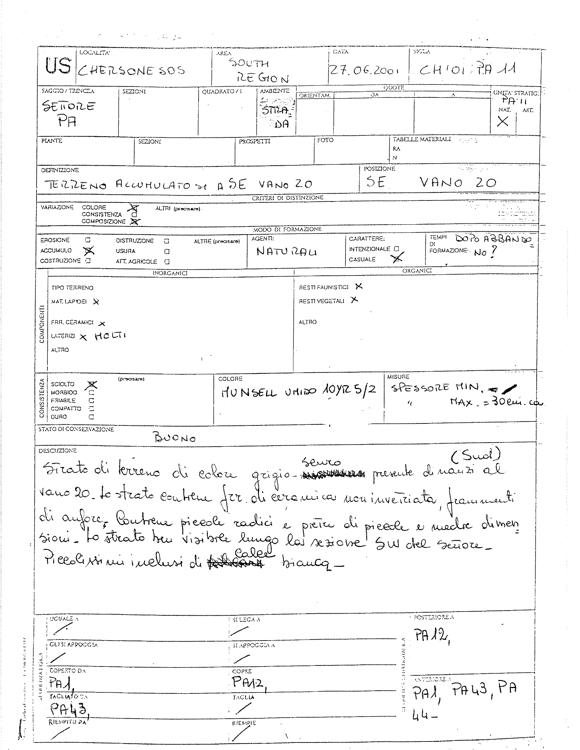 US
LOCALITA'
CHERSONESOS
AREA
SOUTH
REGION
DATA
27.06.2001
SIGLA
CH'01 PA 11
SAGGIO / TRINCEA
SETTORE
PA
SEZIONI
QUADRATO / I
AMBIENTE
STRA
DA
QUOTE
ORIENTAM.
DA
A
UNITA' STRATIG.
PA 11
NAT.
ART.
X
PIANTE
SEZIONI
PROSPETTI
FOTO
TABELLE MATERIALI
RA
N
DEFINIZIONE
TERRENO ACCUMULATOSI A SE VANO 20
POSIZIONE
SE VANO 20
CRITERI DI DISTINZIONE
VARIAZIONE
COLORE X
CONSISTENZA
COMPOSIZIONE X
ALTRI (precisare)
MODO DI FORMAZIONE
EROSIONE
ACCUMULO X
COSTRUZIONE
DISTRUZIONE
USURA
ATT. AGRICOLE
ALTRE (precisare)
AGENTI:
NATURALI
CARATTERE:
INTENZIONALE
CASUALE X
TEMPI
DI
FORMAZIONE
DOPO ABBANDO
NO?
COMPONENTI
INORGANICI
TIPO TERRENO
MAT. LAPIDEI X
FRR. CERAMICI X
LATERIZI X MOLTI
ALTRO
ORGANICI
RESTI FAUNISTICI X
RESTI VEGETALI X
ALTRO
CONSISTENZA
SCIOLTO X
MORBIDO
FRIABILE
COMPATTO
DURO
(precisare)
COLORE
MUNSELL UMIDO 10YR 5/2
MISURE
SPESSORE MIN.
" MAX. = 30cm. ca
STATO DI CONSERVAZIONE
BUONO
DESCRIZIONE
Strato di terreno di colore grigio scuro presente dinanzi al (Sud)
vano 20. Lo strato contiene frr. di ceramica non invetriata, frammenti
di anfore. Contiene piccole radici e pietre di piccole e medie dimen
sioni. Lo strato ben visibile lungo la sezione SW del settore.
Piccolissimi inclusi di calce bianca.
UGUALE A
/
SI LEGA A
/
GLI SI APPOGGIA
/
SI APPOGGIA A
/
COPERTO DA
PA1,
COPRE
PA12,
TAGLIATO DA
PA43,
TAGLIA
/
RIEMPITO DA
/
RIEMPIE
/
POSTERIORE A
PA12,
ANTERIORE A
PA1, PA43, PA
44